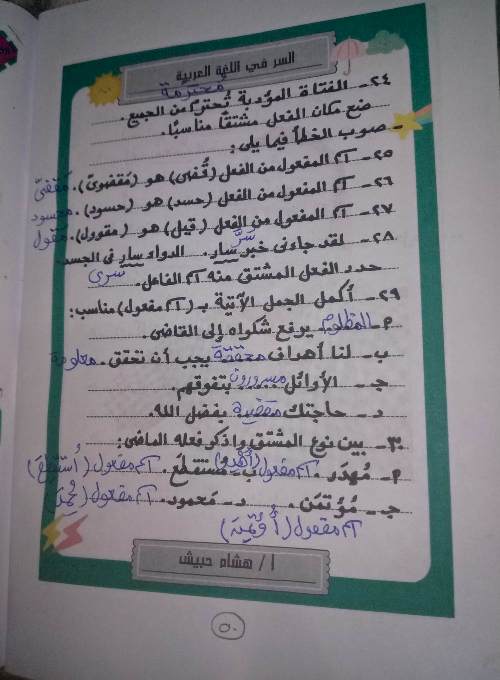 السر في اللغة العربية
محترمة
٢٤- الفتاة المؤدبة تُحترم من الجميع.
ضع مكان الفعل مشتقًا مناسبًا.
- صوب الخطأ فيما يلى:
٢٥- اسم المفعول من الفعل (قُضى) هو (مَقضوىّ). مَقضىّ
٢٦- اسم المفعول من الفعل (حسد) هو (حسود). محسود
٢٧- اسم المفعول من الفعل (قيل) هو (مقوول). مَقول
٢٨- لقد جاءنى خبر سار. الدواء سار فى الجسد.
سَرَّ
حدد الفعل المشتق منه اسم الفاعل. سَرى
٢٩- أكمل الجمل الآتية بـ (اسم مفعول) مناسب:
أ- المظلوم يرفع شكواه إلى القاضى.
ب- لنا أهداف محققة يجب أن تحقق. معلومة
جـ- الأوائل مسرورون بتفوقهم.
د- حاجتك مقضية بفضل الله.
٣٠- بين نوع المشتق واذكر فعله الماضى:
أ- مُهدَر. اسم مفعول (أُهدِر) ب- مُستقلَع. اسم مفعول (اُستُقلِعَ)
جـ- مُؤتمَن. د- مَحمود. اسم مفعول (حُمِدَ)
اسم مفعول
أ / هشام حبيش
٥٠